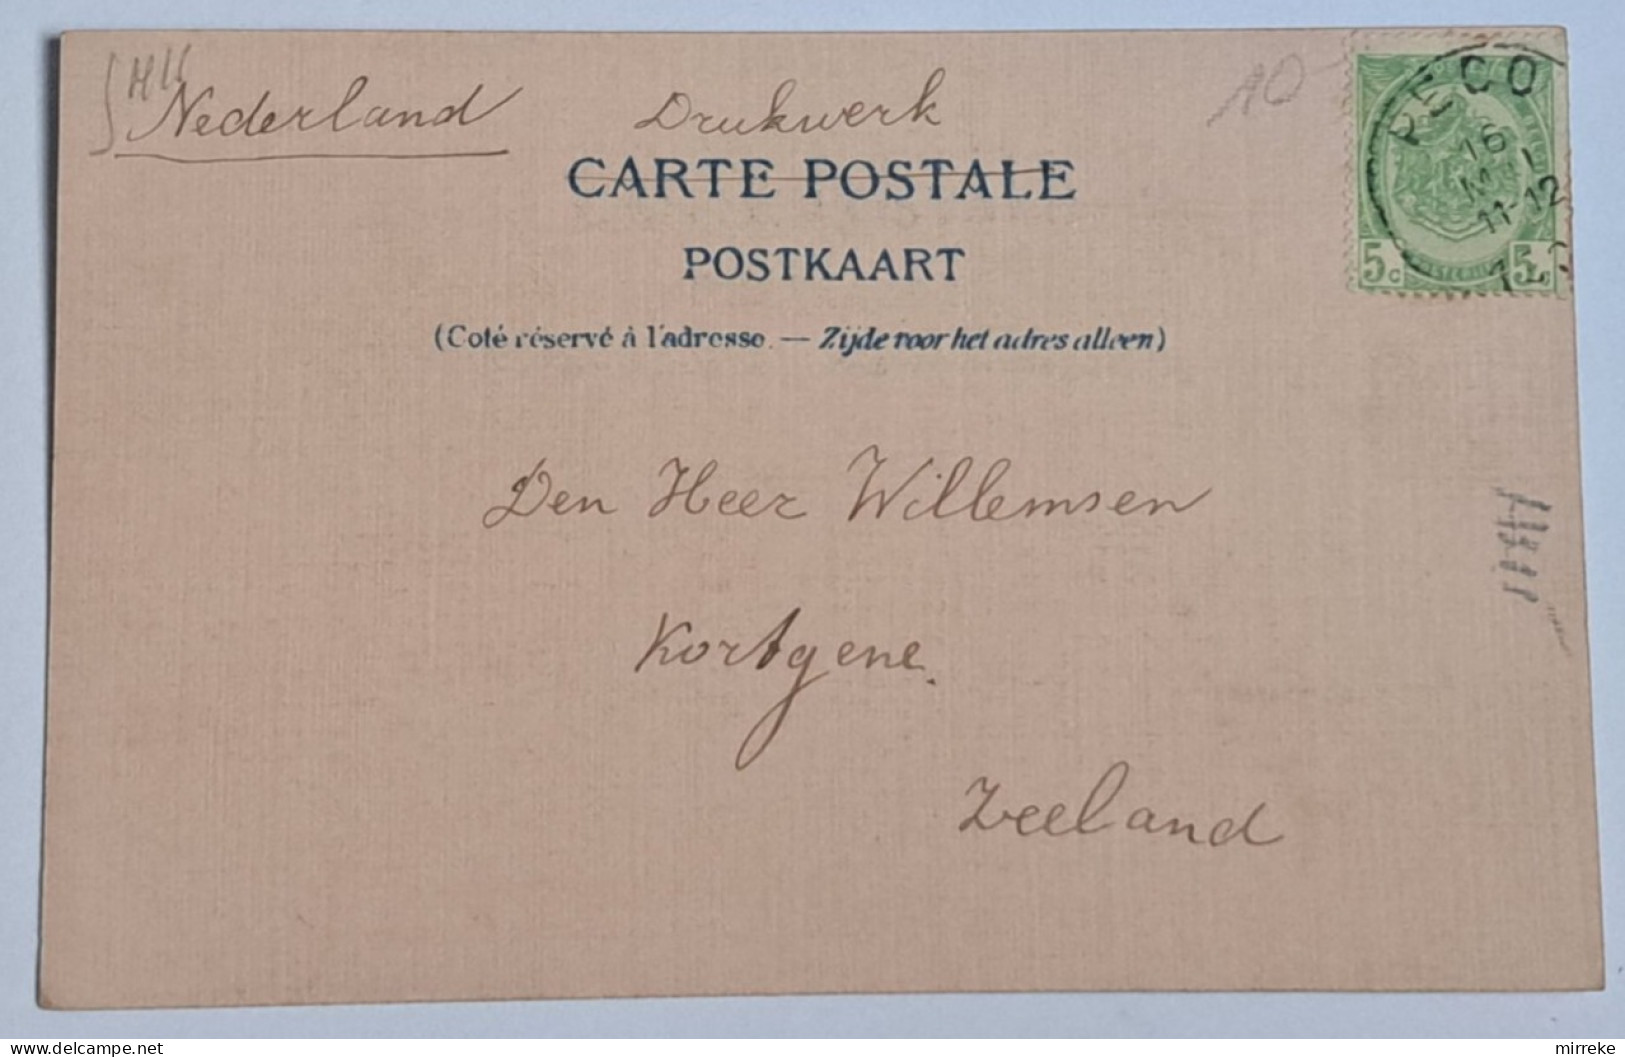 Nederland
Drukwerk
10
CARTE POSTALE
POSTKAART
(Coté réservé à l'adresse. — Zijde voor het adres alleen)
PECQ
16
MAI
11-12
5c 5c
Den Heer Willemsen
Kortgene.
Zeeland
delcampe.net
mirreke